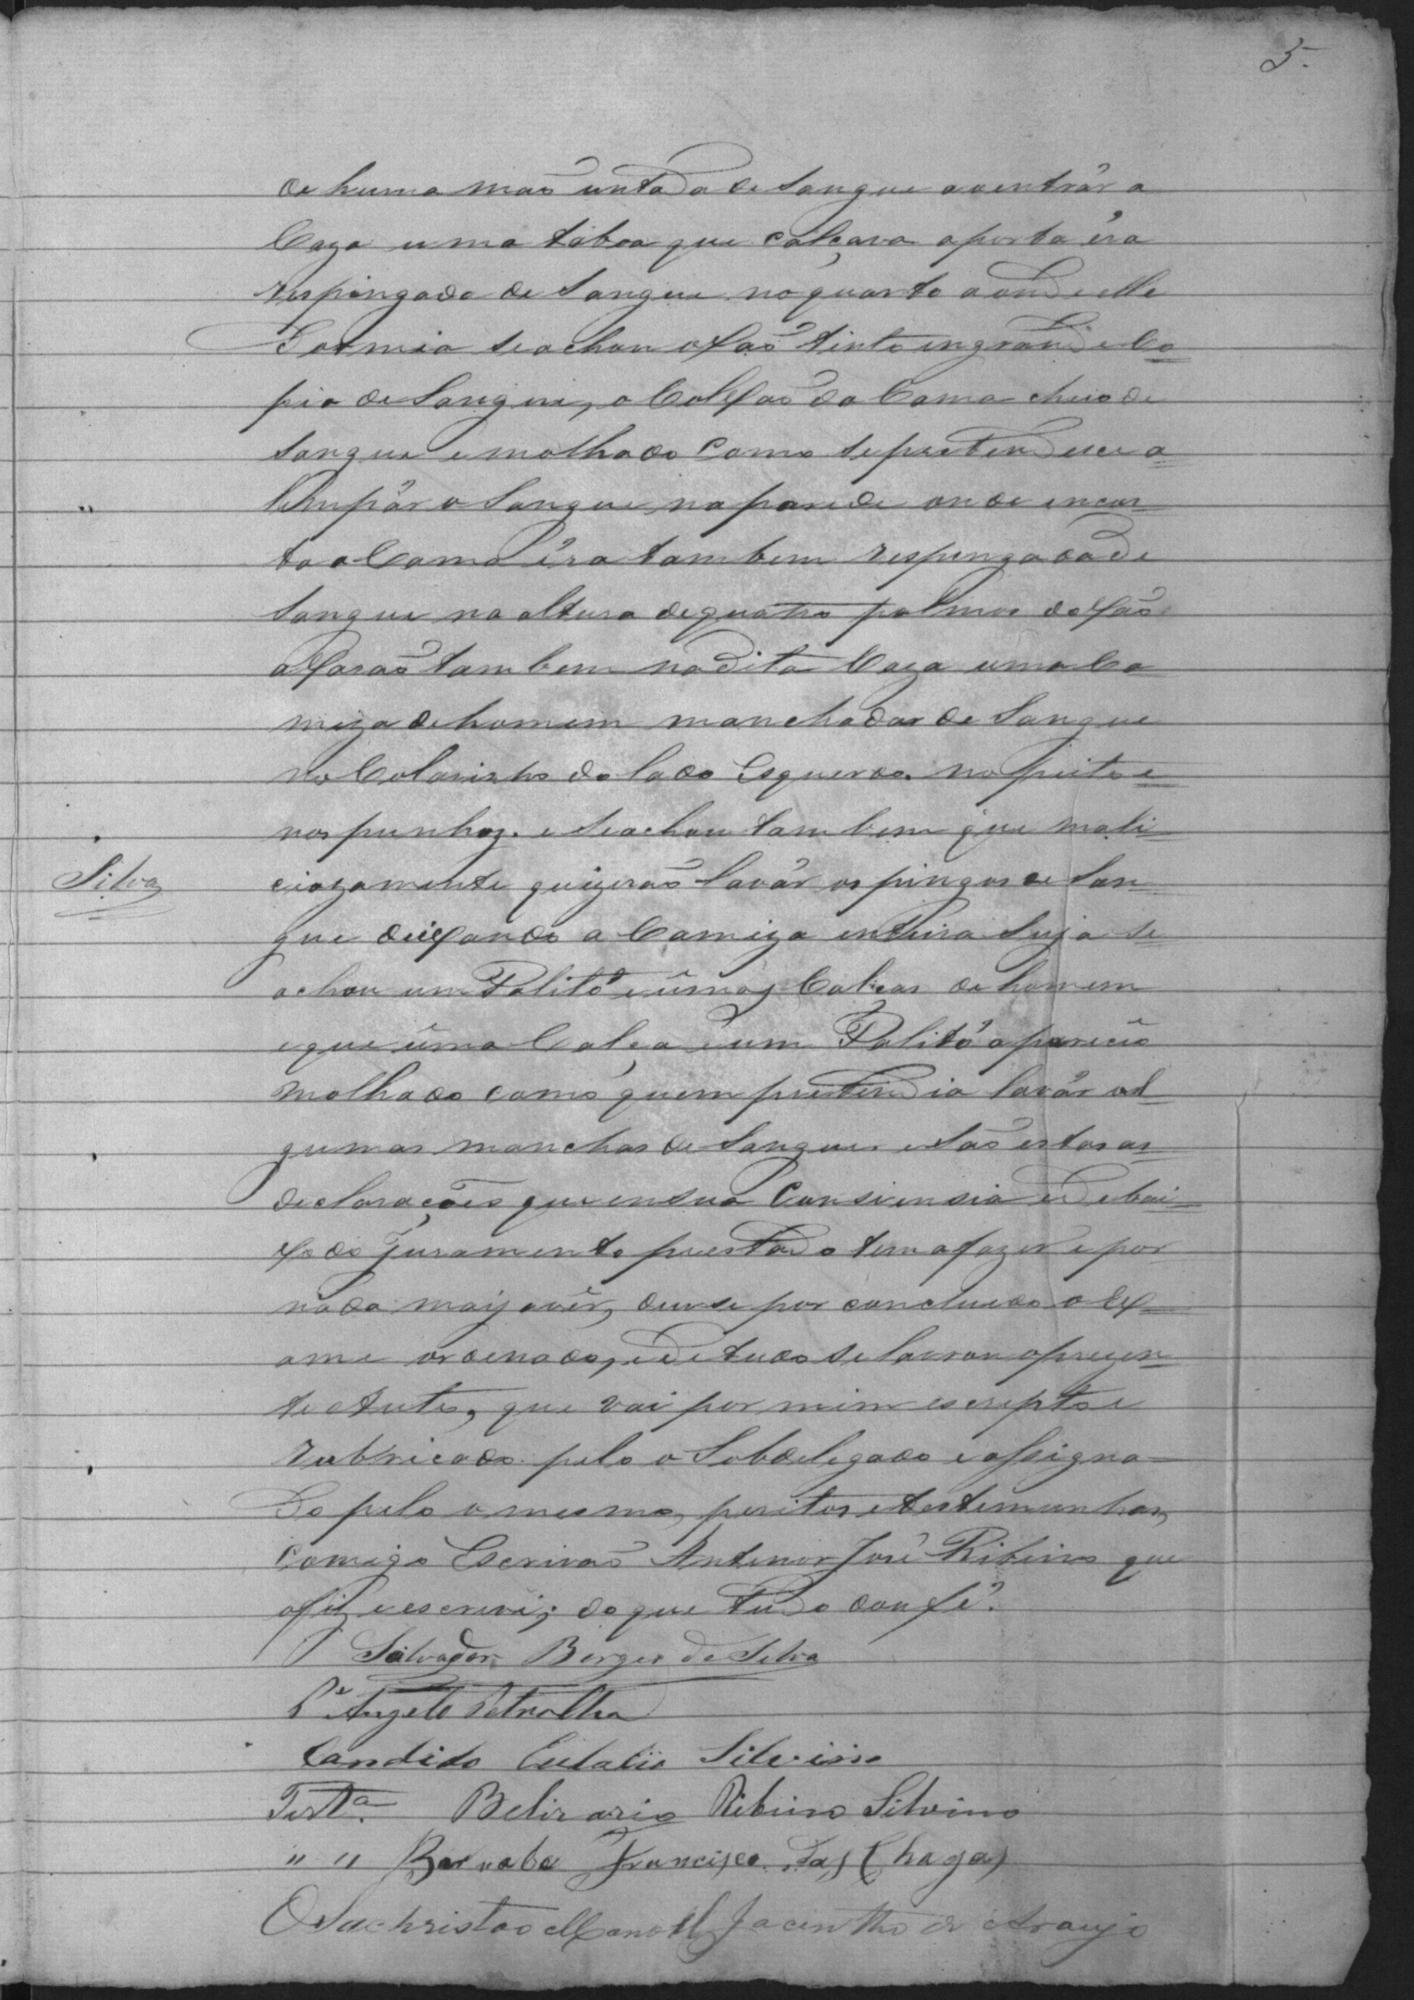 5.
de huma mão untada de Sangue a ventrár a
Caza uma táboa que calçava a porta éra
respingado de Sangue no quarto aonde elle
Dormia se achou o xão tinto em grande Co=
pia de Sangue, o Colxão da Cama cheio de
Sangue e molhado como se pretendesce a
limpár o Sangue, na parede onde encos-
ta a Cama éra tambem respingada de
Sangue na altura de quatro palmos do xão
axarão tambem na dita Caza uma Ca
miza de homem manchadas de Sangue
no Colarinho do lado Esquerdo. no peito e
nos punhoz. e se achou tambem que mali
Silva
ciozamente quizerão lavár os pingos de San-
gue deixando a Camiza inteira Suja se
achou um Palitó e úmas Calças de homem
e que úma Calça e um Palitó a pareceo
molhado como quem pretendia lavár al
gumas manchas de Sangue e São estas as
declarações que en sua Consiensia e Debai
xo do Juramento prestado tem a fazer e por
nada mais avêr, deu-se por concluido o Ex-
ame ordenado, e De tudo se lavrou o prezen
te Auto, que vai por mim escripto e
rubricado pelo o Subdelegado e assigna-
Do pelo o mesmo, peritos e testemunhas,
Comigo Escrivão Antenor José Ribeiro que
o fiz e escrevi; do que tudo dou fé.
Salvador Borges da Silva
Pe Angelo Petraltia
Candido Eulalio Silvino
Testa. Belizario Ribeiro Silvino
" " Barnabe Francisco Das Chagas
O Sachristão Manoel Jacintho de Araujo